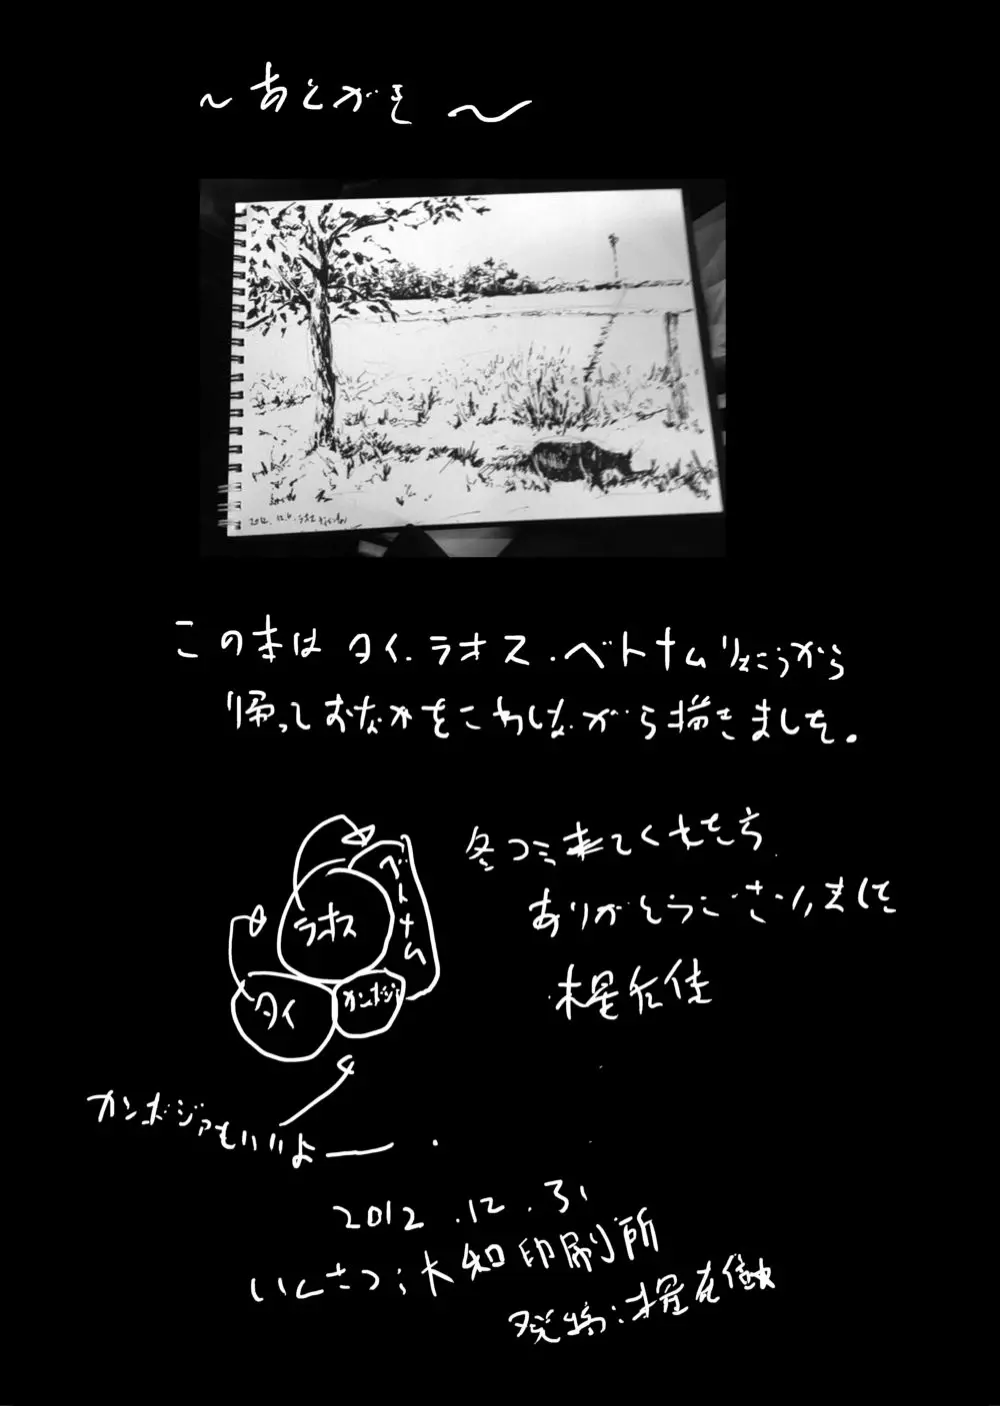 ～あとがき～
2012.12.
この本は タイ.ラオス.ベトナムりょこうから
帰っておなかをこわしながら描きました。
冬コミ来てくれた方
ありがとうございました
ベトナム
ラオス
タイ
カンボジア
カンボジアもいいよー.
2012.12.31
いんさつ:大知印刷所
発行: